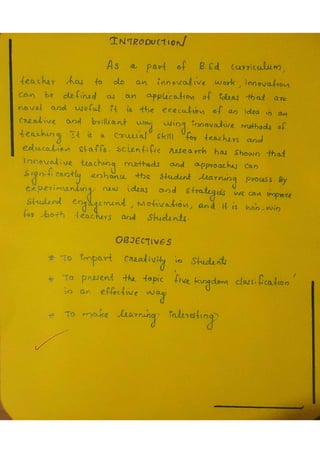 INTRODUCTION
As a part of B.Ed curriculum,
teacher has to do an innovative work, Innovation
can be defined as an application of ideas that are
novel and useful. It is the execution of an idea in an
creative and brilliant way using innovative methods of
teaching It is a crucial skill for teachers and
education staffs. Scientific Research has shown that
innovative teaching methods and approaches can
significantly enhance the student learning process. By
experimenting new ideas and strategies we can improve
student engagement, Motivation, and it is win-win
for both teachers and students.
OBJECTIVES
* To impart creativity in students
* To present the topic 'five kingdom classification'
in an effective way
* To make learning interesting